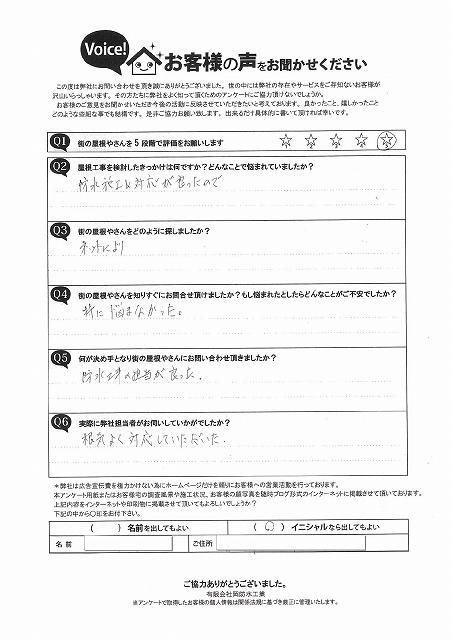 Voice!
お客様の声をお聞かせください
この度は弊社にお問い合わせを頂き誠にありがとうございました。世の中には弊社の存在やサービスをご存知ないお客様が
沢山いらっしゃいます。その方たちに弊社をよく知って頂くためのアンケートにご協力頂けないでしょうか。
お客様のご意見をお聞かせいただき今後の活動に反映させていただきたいと考えております。良かったこと、嬉しかったこと
どのような些細な事でも結構です。是非ご協力お願い致します。出来るだけ具体的に書いて頂ければ幸いです。
Q1 街の屋根やさんを5段階で評価をお願いします ☆ ☆ ☆ ☆ ☆
Q2 屋根工事を検討したきっかけは何ですか?どんなことで悩まれていましたか?
防水施工と対応が良ったので
Q3 街の屋根やさんをどのように探しましたか?
ネットにより
Q4 街の屋根やさんを知りすぐにお問合せ頂けましたか?もし悩まれたとしたらどんなことがご不安でしたか?
特に悩まなかった。
Q5 何が決め手となり街の屋根やさんにお問い合わせ頂きましたか?
防水工事の担当が良った.
Q6 実際に弊社担当者がお伺いしていかがでしたか?
根気よく対応していただいた.
＊弊社は広告宣伝費を極力かけない為にホームページだけを頼りにお客様への営業活動を行っております。
本アンケート用紙またはお客様宅の調査風景や施工状況、お客様の顔写真を随時ブログ形式のインターネットに掲載させて頂いております。
上記内容をインターネットや印刷物に掲載させて頂いてもよろしいでしょうか?
下記の中から〇印をお付下さい。
(　) 名前を出してもよい (〇) イニシャルなら出してもよい
名前 ご住所
ご協力ありがとうございました。
有限会社岡防水工業
※アンケートで取得したお客様の個人情報は関係法規に基づき厳正に管理いたします。